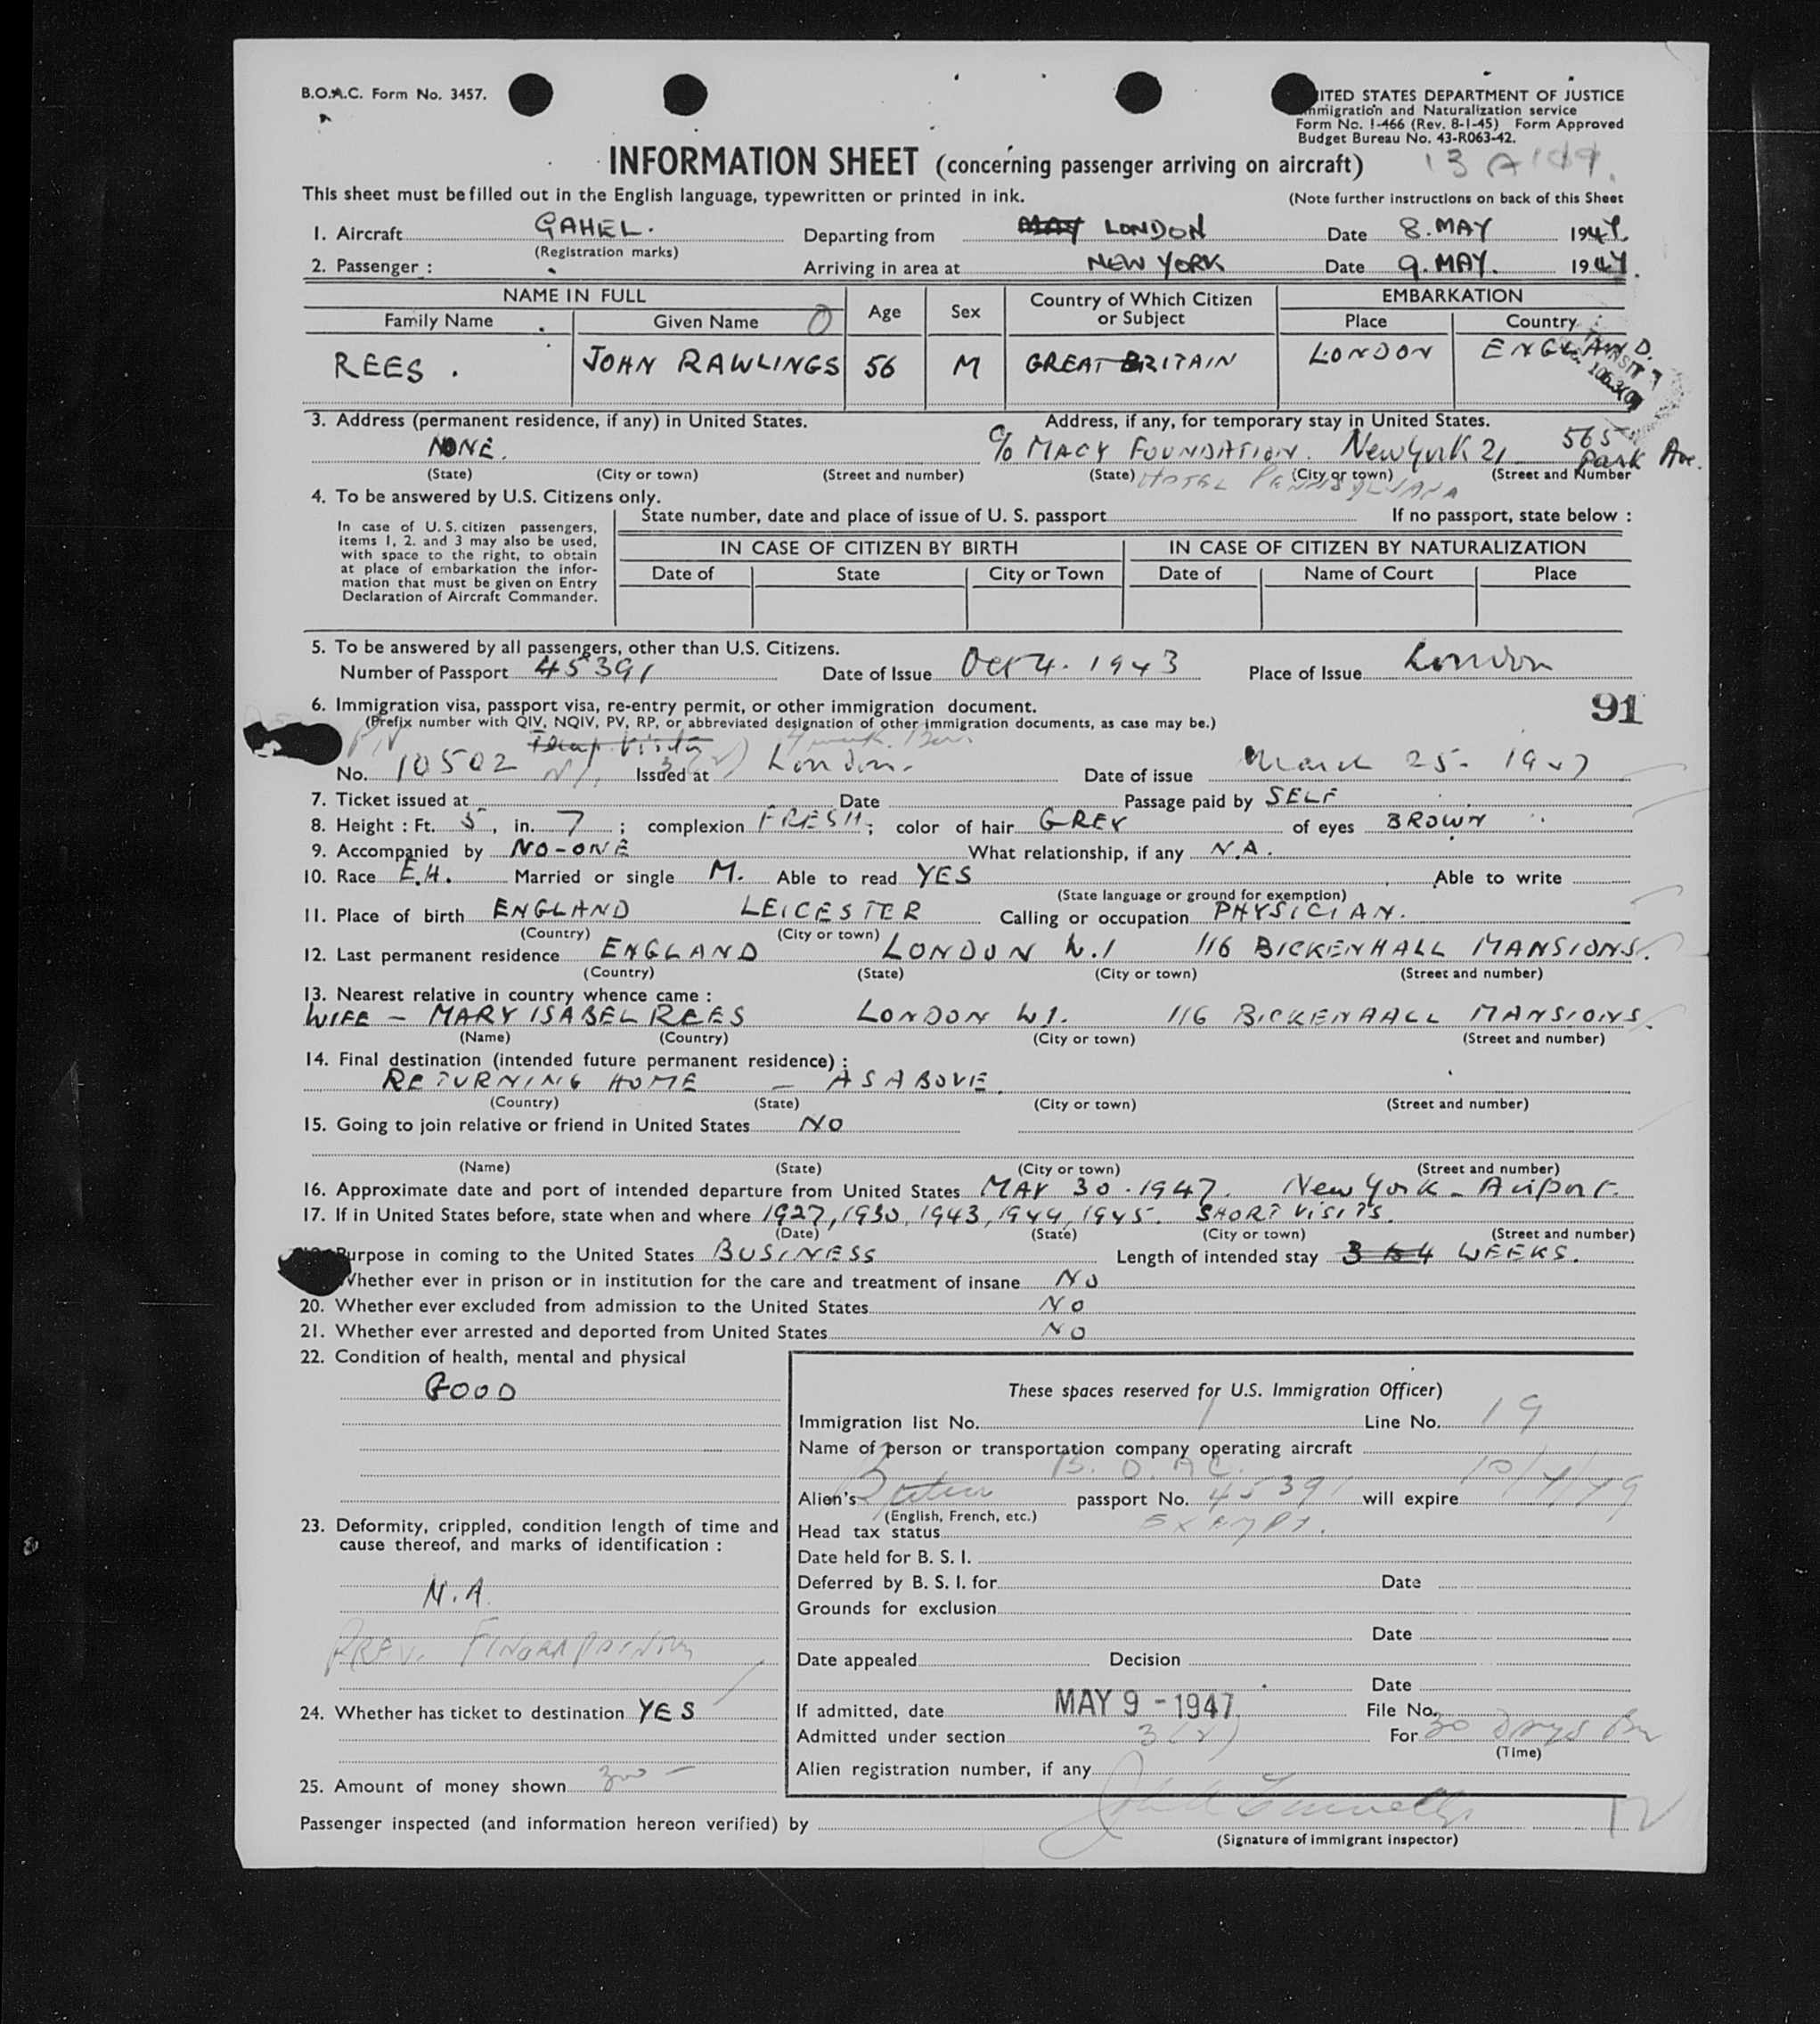 B.O.A.C. Form No. 3457.
ITED STATES DEPARTMENT OF JUSTICE
mmigration and Naturalization service
Form No. I-466 (Rev. 8-1-45) Form Approved
Budget Bureau No. 43-R063-42.
INFORMATION SHEET (concerning passenger arriving on aircraft)
This sheet must be filled out in the English language, typewritten or printed in ink. (Note further instructions on back of this Sheet
1. Aircraft GAHEL. Departing from MAY LONDON Date 8. MAY 1947.
(Registration marks)
2. Passenger : Arriving in area at NEW YORK Date 9. MAY. 1947.
NAME IN FULL Age Sex Country of Which Citizen or Subject EMBARKATION
Family Name Given Name Place Country
REES. JOHN RAWLINGS 56 M GREAT BRITAIN LONDON ENGLAND.
3. Address (permanent residence, if any) in United States. Address, if any, for temporary stay in United States.
NONE. C/o MACY FOUNDATION. New York 21 565 Park Ave.
(State) (City or town) (Street and number) (State) (City or town) (Street and Number
HOTEL PENNSYLVANIA
4. To be answered by U.S. Citizens only.
In case of U.S. citizen passengers, items 1, 2. and 3 may also be used, with space to the right, to obtain at place of embarkation the information that must be given on Entry Declaration of Aircraft Commander.
State number, date and place of issue of U. S. passport If no passport, state below :
IN CASE OF CITIZEN BY BIRTH IN CASE OF CITIZEN BY NATURALIZATION
Date of State City or Town Date of Name of Court Place
5. To be answered by all passengers, other than U.S. Citizens.
Number of Passport 45391 Date of Issue Oct 4. 1943 Place of Issue London
91
6. Immigration visa, passport visa, re-entry permit, or other immigration document.
(Prefix number with QIV, NQIV, PV, RP, or abbreviated designation of other immigration documents, as case may be.)
Temp. Visitor
No. 10502 Issued at 3(2) London. Date of issue March 25. 1947
7. Ticket issued at Date Passage paid by SELF
8. Height : Ft. 5, in. 7 ; complexion FRESH; color of hair GREY of eyes BROWN
9. Accompanied by NO-ONE What relationship, if any N.A.
10. Race E.H. Married or single M. Able to read YES Able to write
(State language or ground for exemption)
11. Place of birth ENGLAND LEICESTER Calling or occupation PHYSICIAN.
(Country) (City or town)
12. Last permanent residence ENGLAND LONDON W.1 116 BICKENHALL MANSIONS.
(Country) (State) (City or town) (Street and number)
13. Nearest relative in country whence came :
WIFE - MARY ISABEL REES LONDON W1. 116 BICKENHALL MANSIONS.
(Name) (Country) (City or town) (Street and number)
14. Final destination (intended future permanent residence) :
RETURNING HOME - AS ABOVE.
(Country) (State) (City or town) (Street and number)
15. Going to join relative or friend in United States NO
(Name) (State) (City or town) (Street and number)
16. Approximate date and port of intended departure from United States MAY 30. 1947. New York - Airport.
17. If in United States before, state when and where 1927, 1930, 1943, 1944, 1945. SHORT VISITS.
(Date) (State) (City or town) (Street and number)
Purpose in coming to the United States BUSINESS Length of intended stay 3 to 4 WEEKS.
Whether ever in prison or in institution for the care and treatment of insane NO
20. Whether ever excluded from admission to the United States NO
21. Whether ever arrested and deported from United States NO
22. Condition of health, mental and physical
GOOD
23. Deformity, crippled, condition length of time and cause thereof, and marks of identification :
N.A.
PREV. FINGERPRINTED
24. Whether has ticket to destination YES
25. Amount of money shown 300 -
These spaces reserved for U.S. Immigration Officer)
Immigration list No. 1 Line No. 19
Name of person or transportation company operating aircraft
B. O. A C.
Alien's British passport No. 45391 will expire 10/4/49
(English, French, etc.)
Head tax status EXEMPT.
Date held for B. S. I.
Deferred by B. S. I. for Date
Grounds for exclusion
Date
Date appealed Decision
Date
If admitted, date MAY 9 - 1947 File No.
Admitted under section 3(2) For 30 Days
(Time)
Alien registration number, if any
Passenger inspected (and information hereon verified) by
(Signature of immigrant inspector)